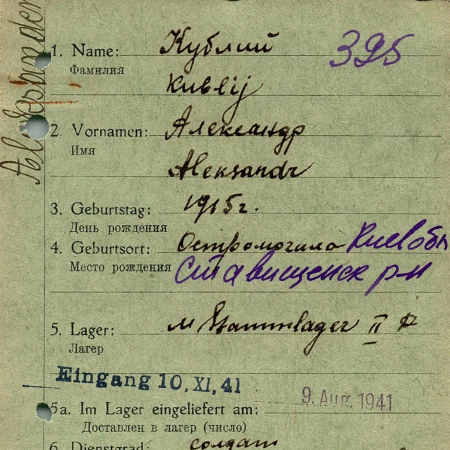 Aleksander
1. Name: Кублий 395
Фамилия
Kublij
2. Vornamen: Александр
Имя
Aleksandr
3. Geburtstag: 1915 г.
День рождения
4. Geburtsort: Остромогила Киев обл
Место рождения Ставищенск р-н
5. Lager: M Stammlager II
Лагер
Eingang 10. XI. 41
9. Aug. 1941
5a. Im Lager eingeliefert am:
Доставлен в лагер (число)
6. Dienstgrad: солдат